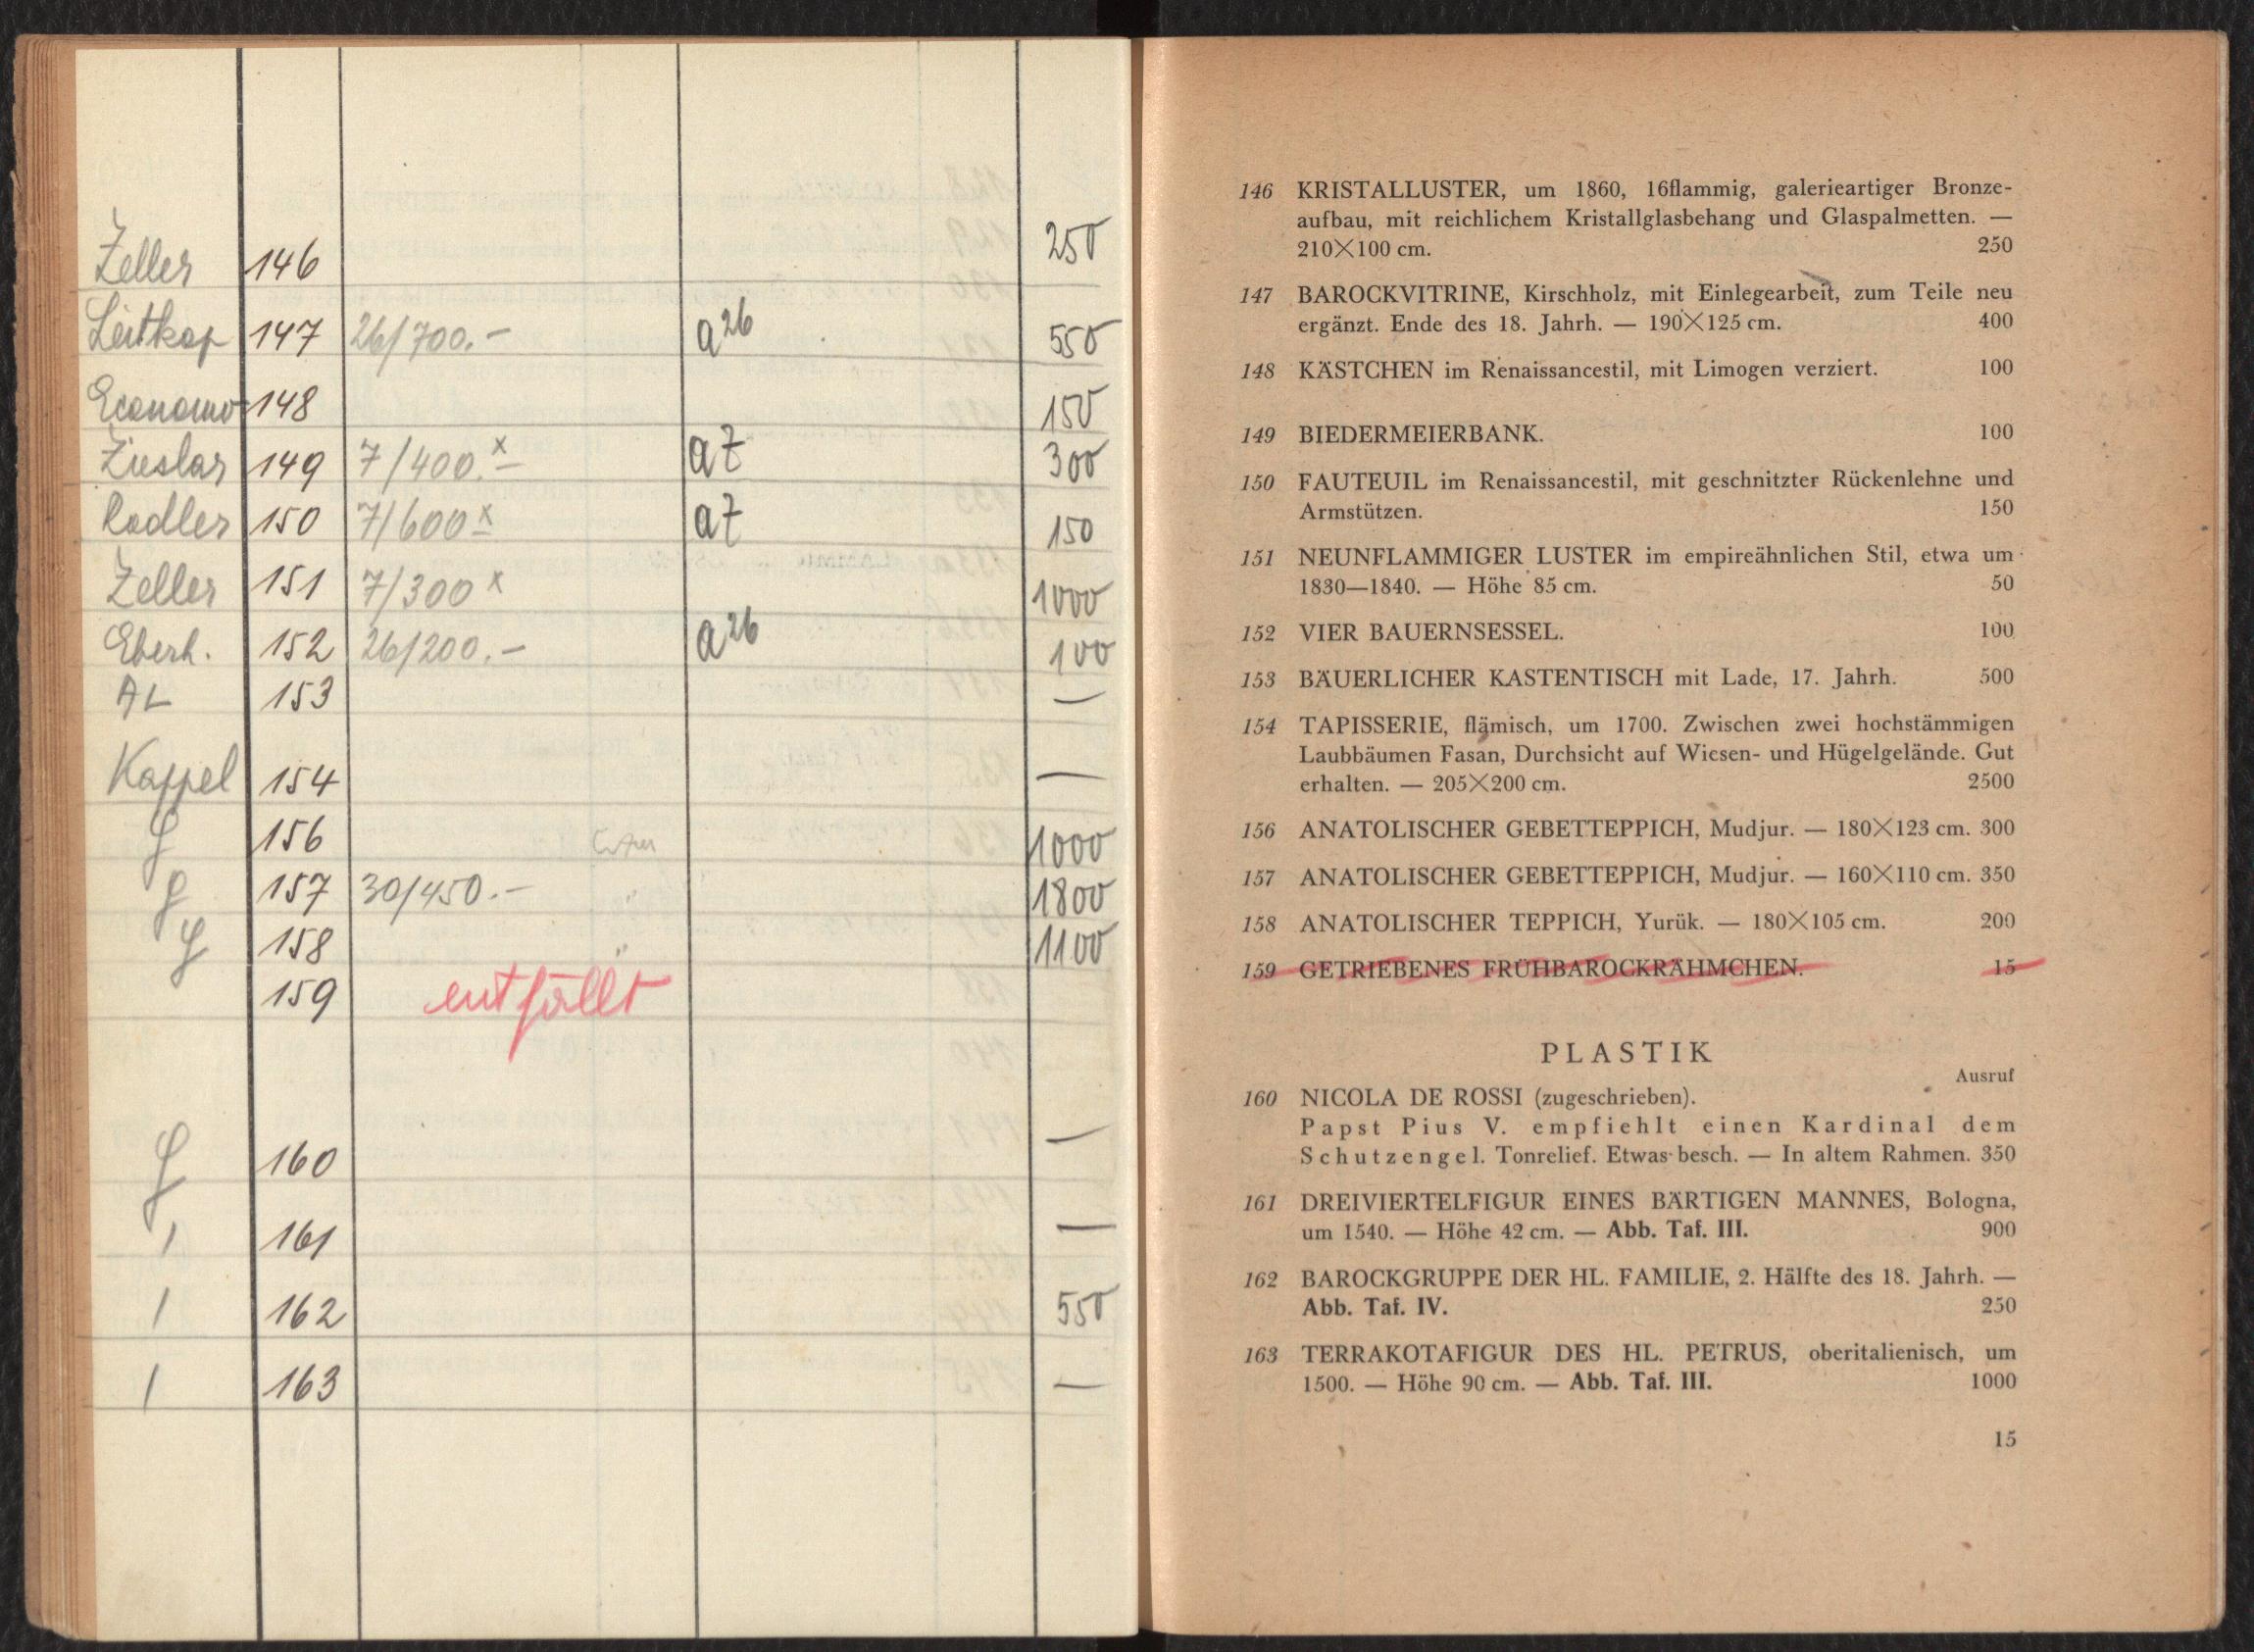 Zeller 146 250
Leitkop 147 26/700.- a26 550
Economo 148 150
149 7/400.- x a7 300
Rodler 150 7/600 x a7 150
Zeller 151 7/300 x 1000
Eberh. 152 26/200.- a26 100
AL 153 —
Kappel 154 —
156 1000
157 30/450.- " 1800
158 " 1100
159 entfällt
160 —
161 —
162 550
163 —
146 KRISTALLUSTER, um 1860, 16flammig, galerieartiger Bronze-
aufbau, mit reichlichem Kristallglasbehang und Glaspalmetten. —
210×100 cm. 250
147 BAROCKVITRINE, Kirschholz, mit Einlegearbeit, zum Teile neu
ergänzt. Ende des 18. Jahrh. — 190×125 cm. 400
148 KÄSTCHEN im Renaissancestil, mit Limogen verziert. 100
149 BIEDERMEIERBANK. 100
150 FAUTEUIL im Renaissancestil, mit geschnitzter Rückenlehne und
Armstützen. 150
151 NEUNFLAMMIGER LUSTER im empireähnlichen Stil, etwa um
1830—1840. — Höhe 85 cm. 50
152 VIER BAUERNSESSEL. 100
153 BÄUERLICHER KASTENTISCH mit Lade, 17. Jahrh. 500
154 TAPISSERIE, flämisch, um 1700. Zwischen zwei hochstämmigen
Laubbäumen Fasan, Durchsicht auf Wiesen- und Hügelgelände. Gut
erhalten. — 205×200 cm. 2500
156 ANATOLISCHER GEBETTEPPICH, Mudjur. — 180×123 cm. 300
157 ANATOLISCHER GEBETTEPPICH, Mudjur. — 160×110 cm. 350
158 ANATOLISCHER TEPPICH, Yurük. — 180×105 cm. 200
159 GETRIEBENES FRÜHBAROCKRÄHMCHEN. 15
PLASTIK
Ausruf
160 NICOLA DE ROSSI (zugeschrieben).
Papst Pius V. empfiehlt einen Kardinal dem
Schutzengel. Tonrelief. Etwas besch. — In altem Rahmen. 350
161 DREIVIERTELFIGUR EINES BÄRTIGEN MANNES, Bologna,
um 1540. — Höhe 42 cm. — Abb. Taf. III. 900
162 BAROCKGRUPPE DER HL. FAMILIE, 2. Hälfte des 18. Jahrh. —
Abb. Taf. IV. 250
163 TERRAKOTAFIGUR DES HL. PETRUS, oberitalienisch, um
1500. — Höhe 90 cm. — Abb. Taf. III. 1000
15